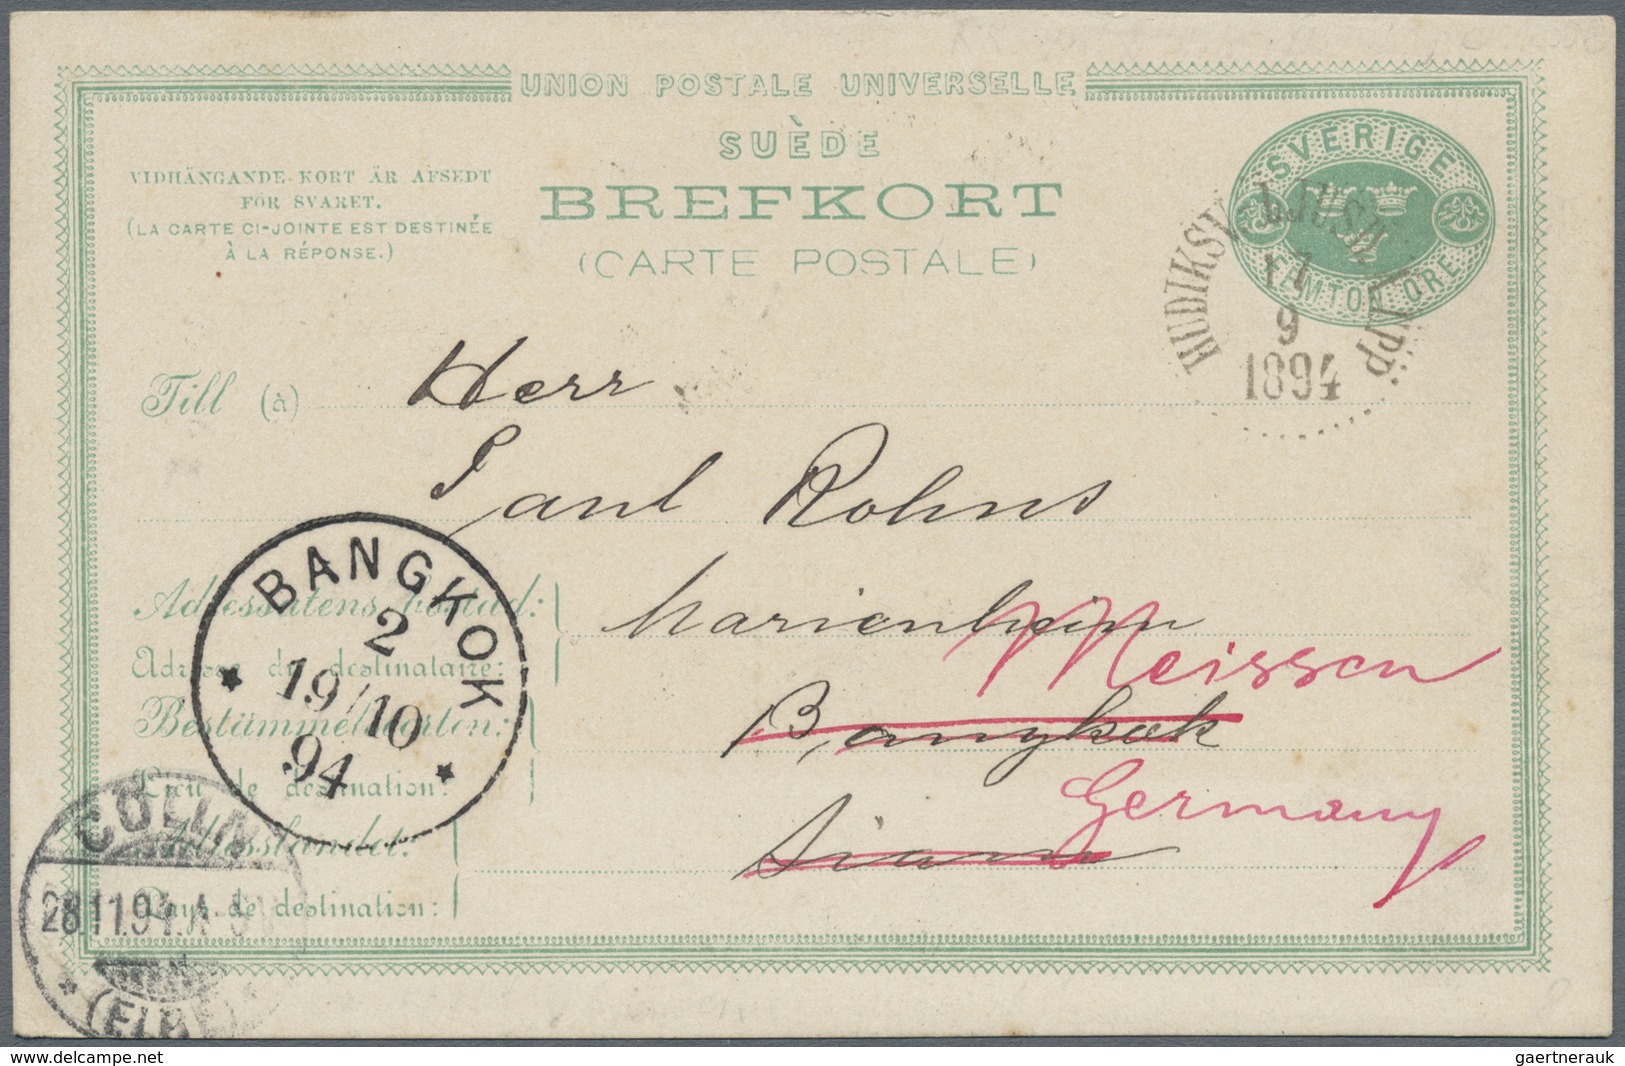 UNION POSTALE UNIVERSELLE
SUÈDE
BREFKORT
(CARTE POSTALE)
VIDHÄNGANDE KORT ÄR AFSEDT
FÖR SVARET.
(LA CARTE CI-JOINTE EST DESTINÉE
À LA RÉPONSE.)
SVERIGE
FEMTON ÖRE
17
9
1894
Till (à) Herr
Paul Rohns
Adressatens bostad:
Adresse du destinataire:
Marienheim
Meissen
Bestämmelseorten:
Lieu de destination:
Bangkok
Adresslandet:
Pays de destination:
Siam
Germany
BANGKOK
2
19/10
94
CÖLLN
28.11.94.
(ELBE)
delcampe.net
gaertnerauk